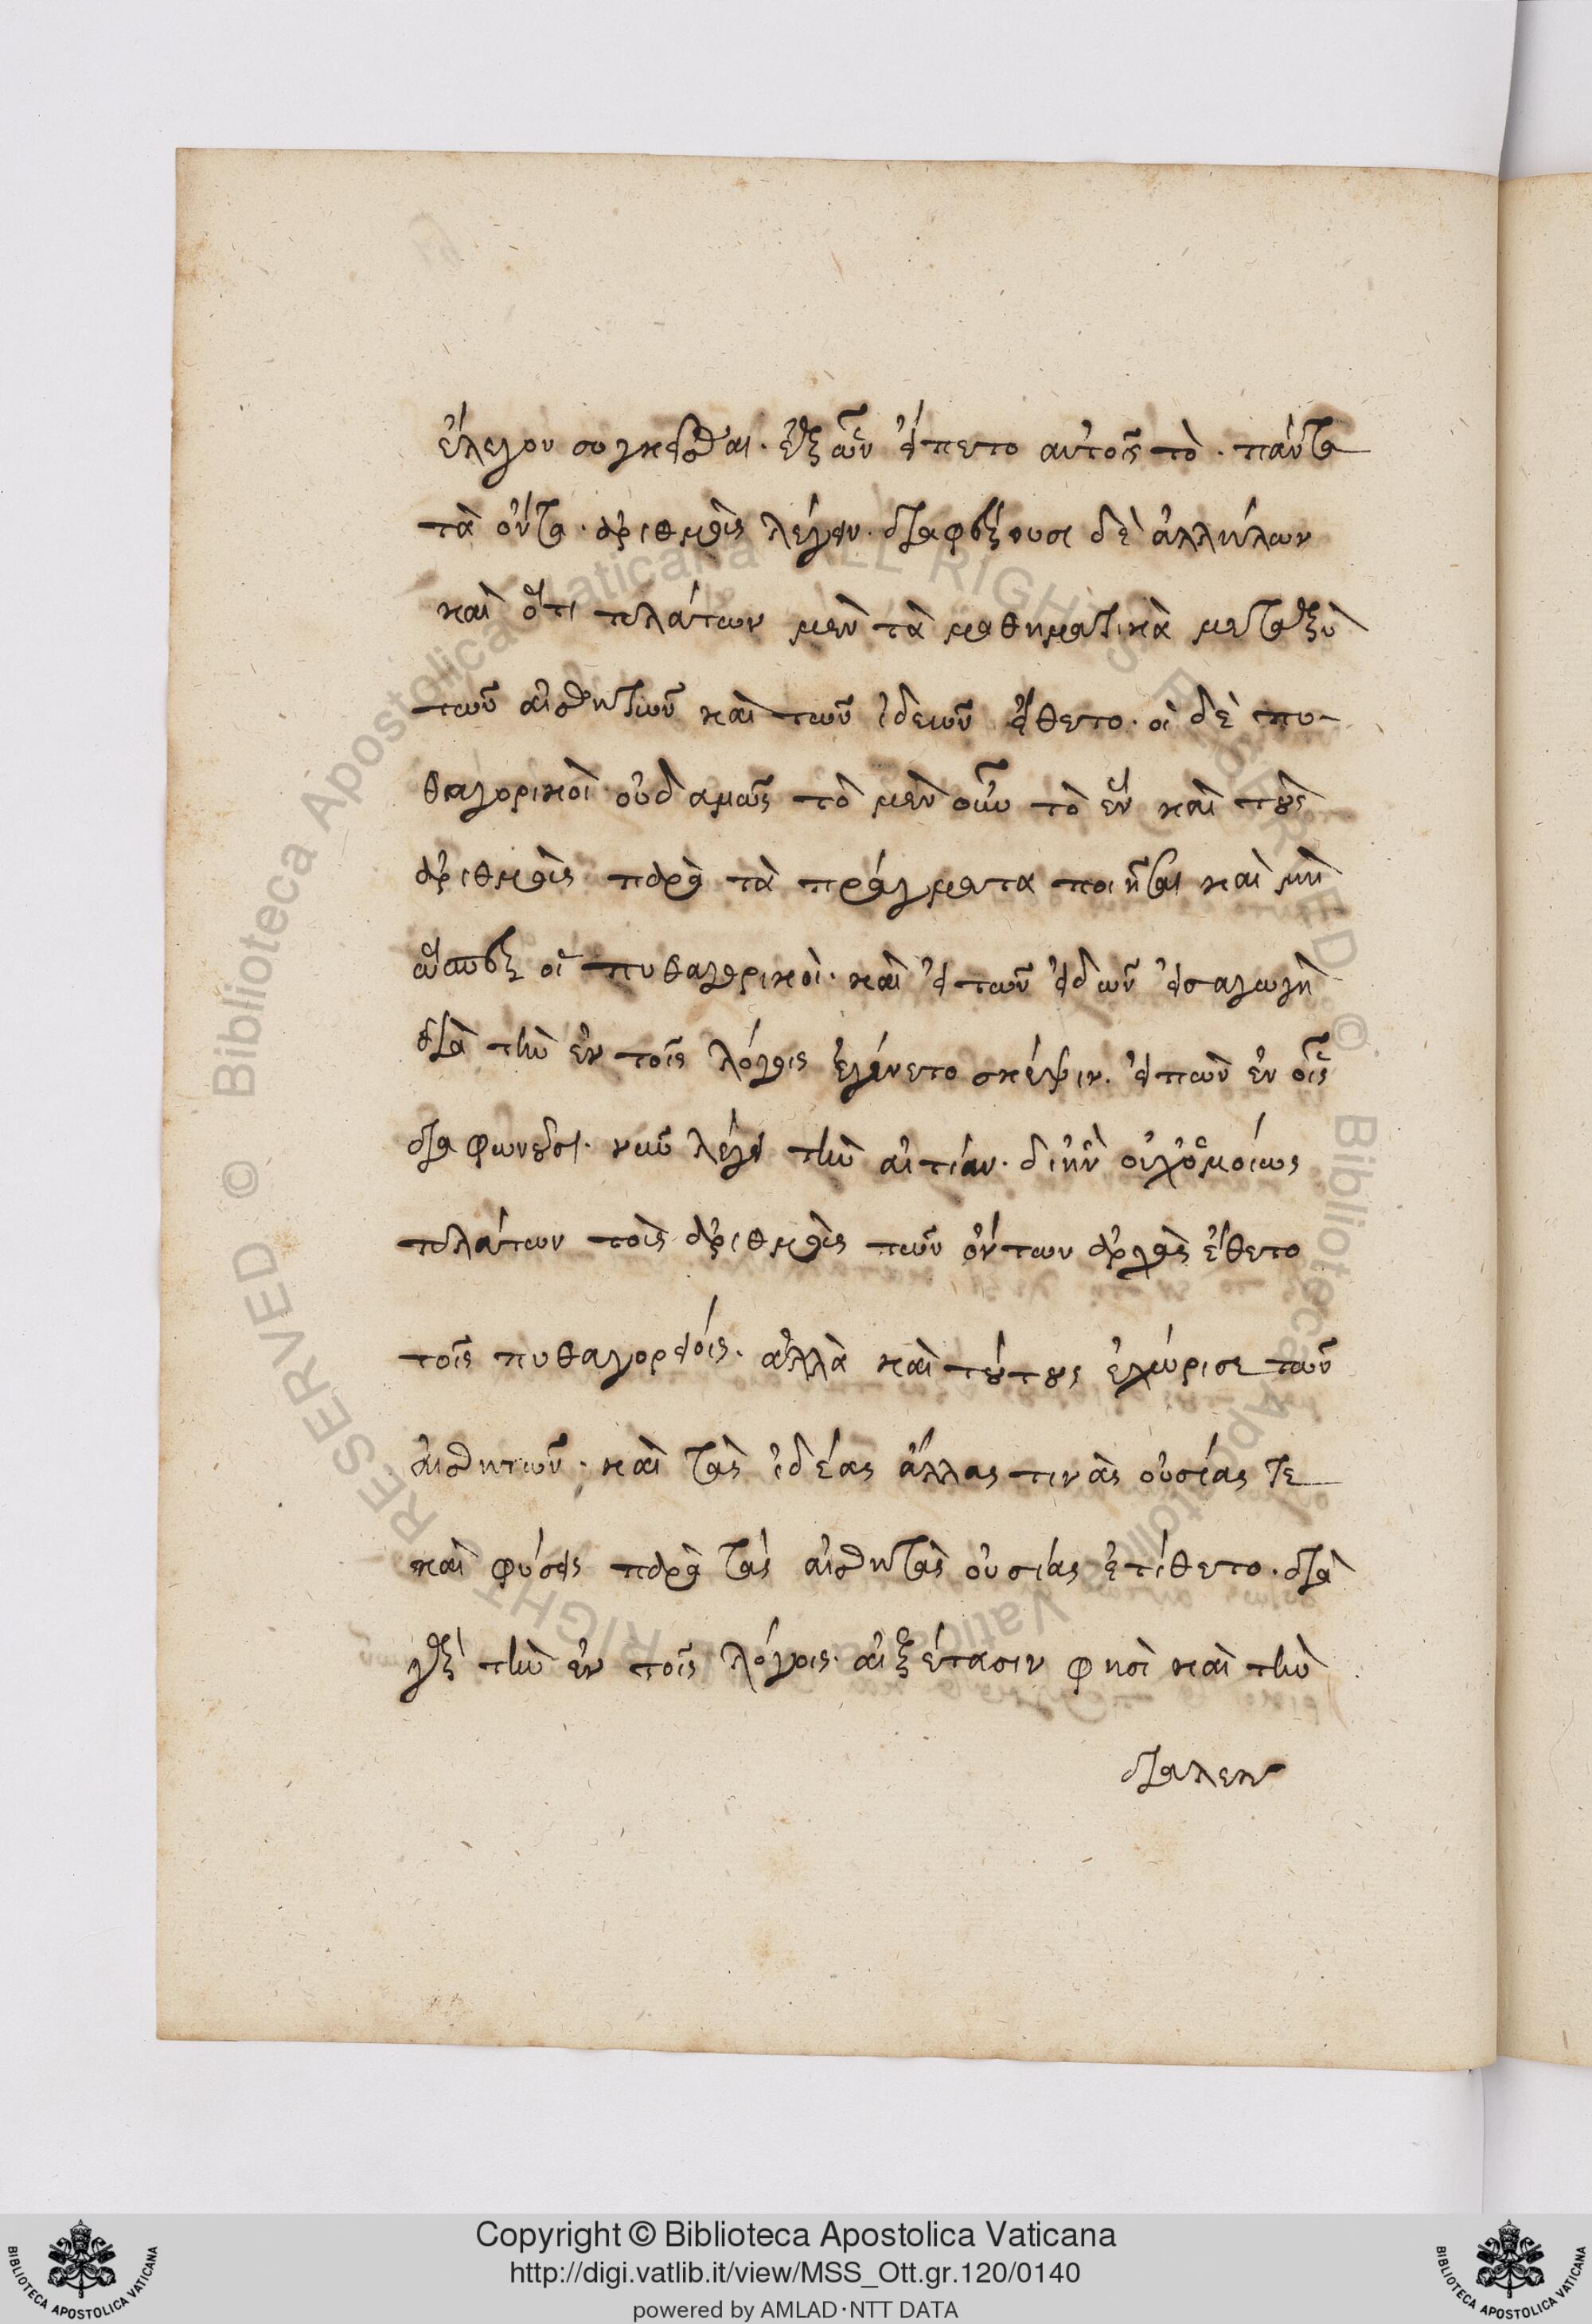 ἔλεγον συγκεῖσθαι. ἐξ ὧν εἵπετο αὐτοῖς τὸ. πάντα
τὰ ὄντα. ἀριθμοὺς λέγειν. διαφέρουσι δὲ ἀλλήλων
καὶ ὅτι πλάτων μὲν τὰ μαθηματικὰ μεταξὺ
τῶν αἰσθητῶν καὶ τῶν ἰδεῶν ἔθετο. οἱ δὲ πυ-
θαγορικοὶ οὐδαμῶς τὸ μὲν οὖν τὸ ἓν καὶ τοὺς
ἀριθμοὺς παρὰ τὰ πράγματα ποιῆσαι καὶ μὴ
ὥσπερ οἱ πυθαγορικοὶ. καὶ ἡ τῶν εἰδῶν εἰσαγωγὴ
διὰ τὴν ἐν τοῖς λόγοις ἐγένετο σκέψιν. εἰπὼν ἐν οἷς
διαφωνοῦσι. νῦν λέγει τὴν αἰτίαν. δι ἣν οὐχ ὁμοίως
πλάτων τοῖς ἀριθμοῖς τῶν ὄντων ἀρχὰς ἔθετο
τοῖς πυθαγορείοις. ἀλλὰ καὶ τούτους ἐχώρισε τῶν
αἰσθητῶν. καὶ τὰς ἰδέας ἄλλας τινὰς οὐσίας τε
καὶ φύσεις παρὰ τὰς αἰσθητὰς οὐσίας ἐτίθετο. διὰ
γὰρ τὴν ἐν τοῖς λόγοις. ἐξέτασιν φησὶ καὶ τὴν
διαλεκ
Copyright © Biblioteca Apostolica Vaticana
http://digi.vatlib.it/view/MSS_Ott.gr.120/0140
powered by AMLAD·NTT DATA